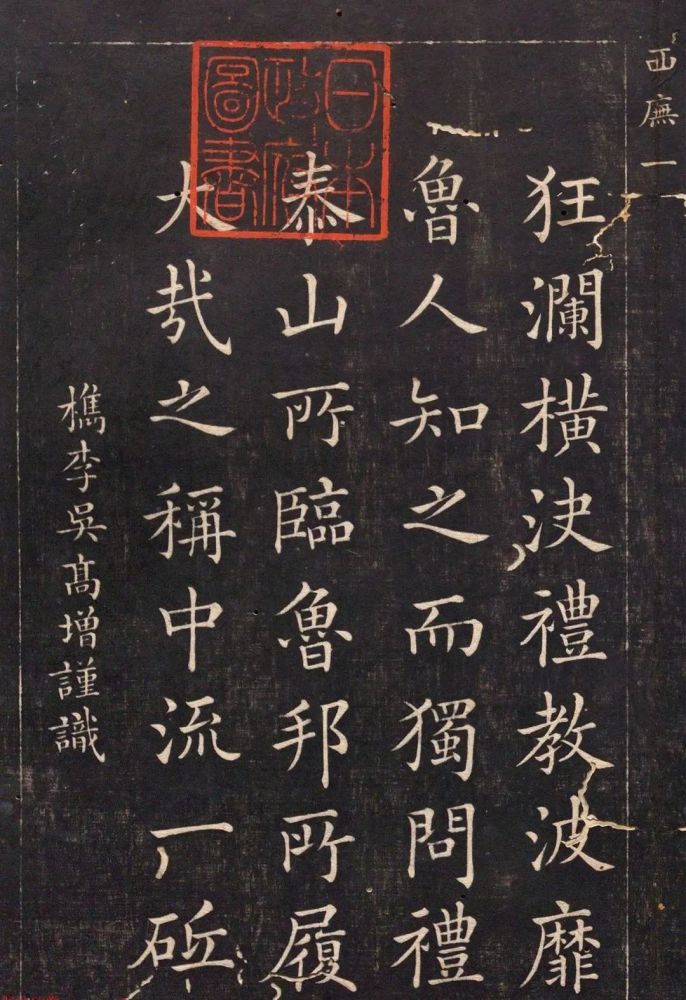 西廡一
狂瀾橫決禮教波靡
魯人知之而獨問禮
泰山所臨魯邦所履
大哉之稱中流一砥
檇李吳高增謹識
日本
政府
圖書